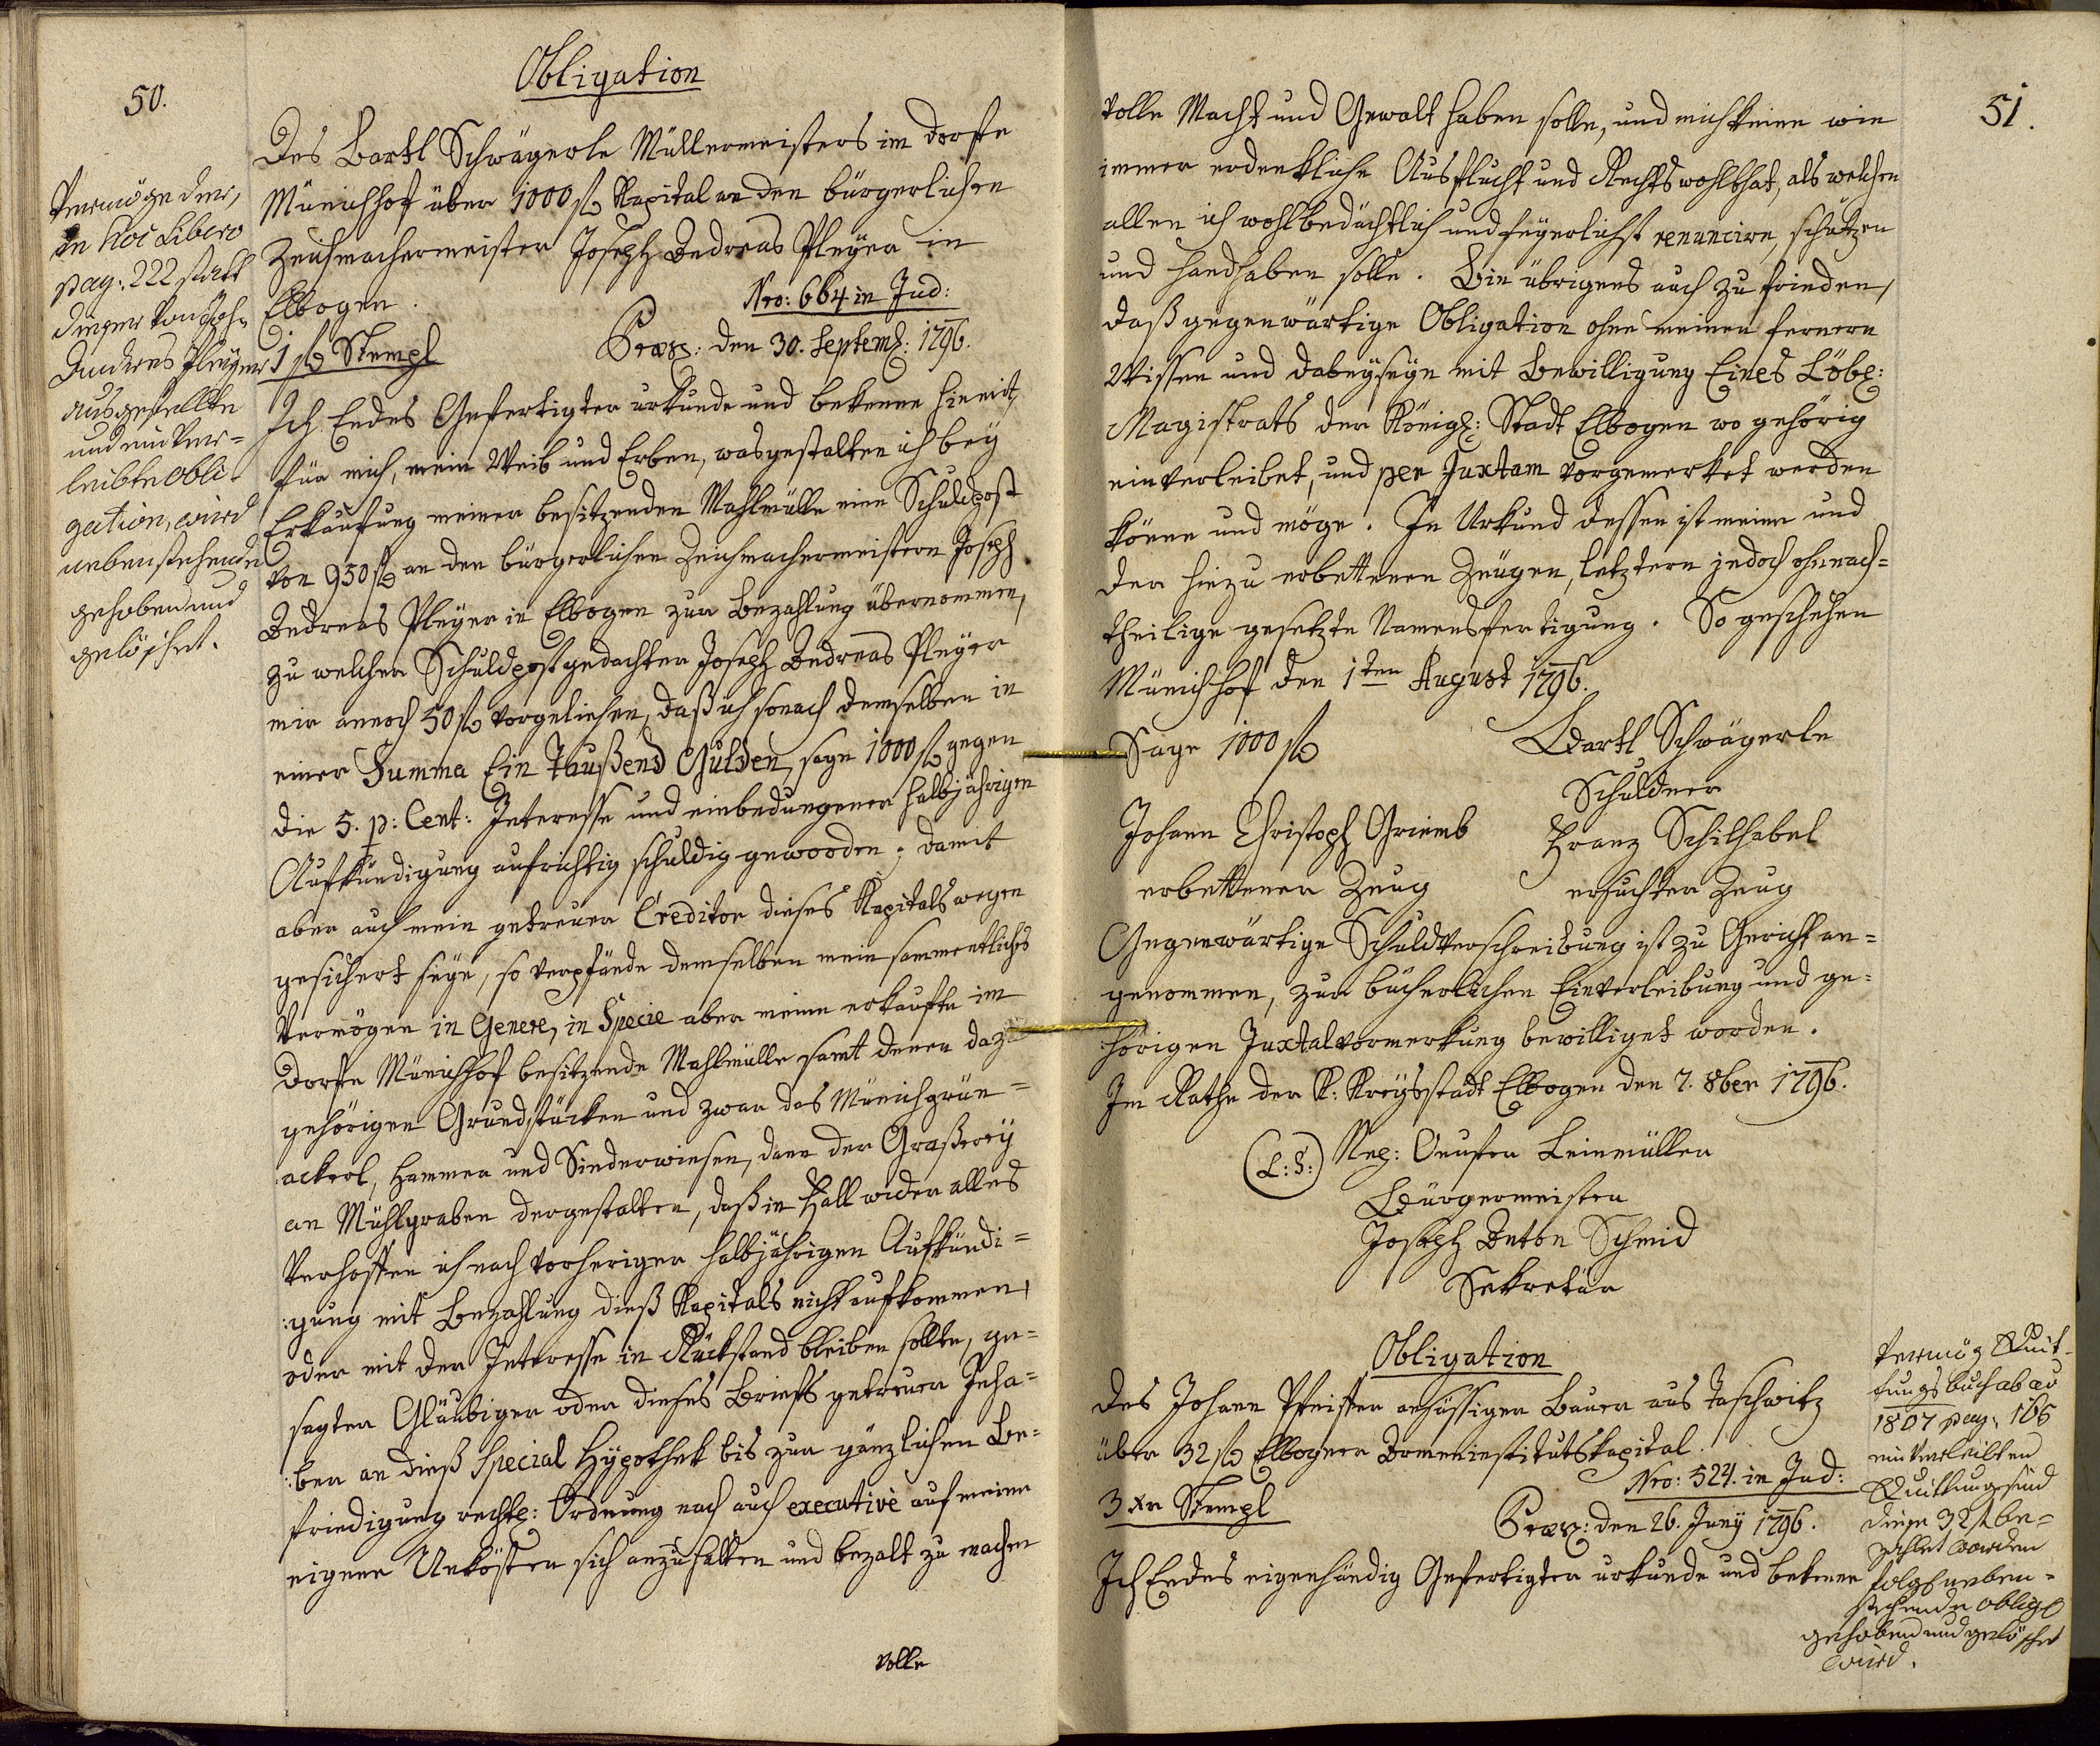 50.
Obligation
Des Bartl Schwägerle Müllermeisters im Dorfe
Münichhof über 1000 fl Kapital an den bürgerlichen
Zeichmachermeister Joseph Andreas Pleÿer in
Elbogen.
Nro: 664 in Jud:
1 fl Stempl
Præs: den 30. Septemb: 1796.
Ich Endes Gefertigter urkunde und bekenne hiemit,
für mich, mein Weib und Erben, wasgestalten ich bey
Erkaufung meiner besitzenden Mahlmülle eine Schuldpost
von 950 fl an den bürgerlichen Zeichmachermeistern Joseph
Andreas Pleÿer in Elbogen zur Bezahlung übernommen,
zu welcher Schuldpost gedachter Joseph Andreas Pleÿer
mir annoch 50 fl vorgeliehen, daß ich sonach demselben in
einer Summa Ein Taußend Gulden, sage 1000 fl gegen
die 5. p: Cent: Interesse und einbedungener halbjährigen
Aufkündigung aufrichtig schuldig geworden; damit
aber auch mein getreuer Creditor dieses Kapitals wegen
gesichert seÿe, so verpfände demselben mein sammentliches
Vermögen in Genere, in Specie aber meine erkaufte im
Dorfe Münichhof besitzende Mahlmülle samt denen dazu
gehörigen Grundstücken und zwar das Münichgrün=
ackerl, Hammer und Sinderwiesen, dann der Graßereÿ
an Mühlgraben dergestalten, daß in Fall wider alles
Verhoffen ich nach vorheriger halbjährigen Aufkündi=
:gung mit Bezahlung dieß Kapitals nicht aufkommen,
oder mit der Interesse in Rückstand bleiben sollte, ge=
sagter Gläubiger oder dieses Briefs getreuer Inha=
:ber an dieß Special Hÿpothek bis zur gänzlichen Be=
friedigung rechtl: Ordnung nach auch executivè auf meine
eigene Unkösten sich anzuhalten und bezalt zu machen
volle
Vermöge der,
in hoc Libero
pag: 222 statt
dieser von Joh.
Andreas Pleyer
ausgestellte
und einver=
leibte Obli=
gation, wird
nebenstehende
gehoben und
gelöschet.
51.
volle Macht und Gewalt haben solle, und mich keine wie
immer erdenkliche Ausflucht und Rechtswohlthat, als welchen
allen ich wohlbedächtlich und feÿerlichst renuncire, schützen
und handhaben solle. Bin übrigens auch zufrieden,
daß gegenwärtige Obligation ohne meinen fernern
Wissen und dabeÿseÿn mit Bewilligung Eines Löbl:
Magistrats der Königl: Stadt Elbogen wo gehörig
einverleibet, und per Juxtam vorgemerket werden
könne und möge. In Urkund dessen ist meine und
der hiezu erbettenen Zeugen, letztern jedoch ohnnach=
theilige gesetzte Namensfertigung. So geschehen
Münichhof den 1ten August 1796.
Sage 1000 fl
Bartl Schwägerle
Schuldner
Johann Christoph Griemb
erbettener Zeug
Franz Schilhabel
ersuchter Zeug
Gegenwärtige Schuldverschreibung ist zu Gericht an=
genommen, zur bücherlichen Einverleibung und ge=
hörigen Juxtalvormerkung bewilliget worden.
Im Rathe der K: Kreÿsstadt Elbogen den 7. 8ber 1796.
(L:S:)
Leinmüller
Bürgermeister
Joseph Anton Schmid
Sekretär
Obligation
des Johann Pfeiffer ansässiger Bauer aus Taschwitz
über 32 fl Elbogner Armeninstitutskapital.
Nro: 524. in Jud:
3 xr Stempl
Præs: den 26. Junÿ 1796.
Ich Endes eigenhändig Gefertigter urkunde und bekenne
Vermög Quit=
tungsbuch ab ao
1807 pag: 165
einverleibten
Quittung sind
diese 32 fl be=
zahlet worden
folgl neben=
stehende Oblig
gehoben und gelöschet
wird.